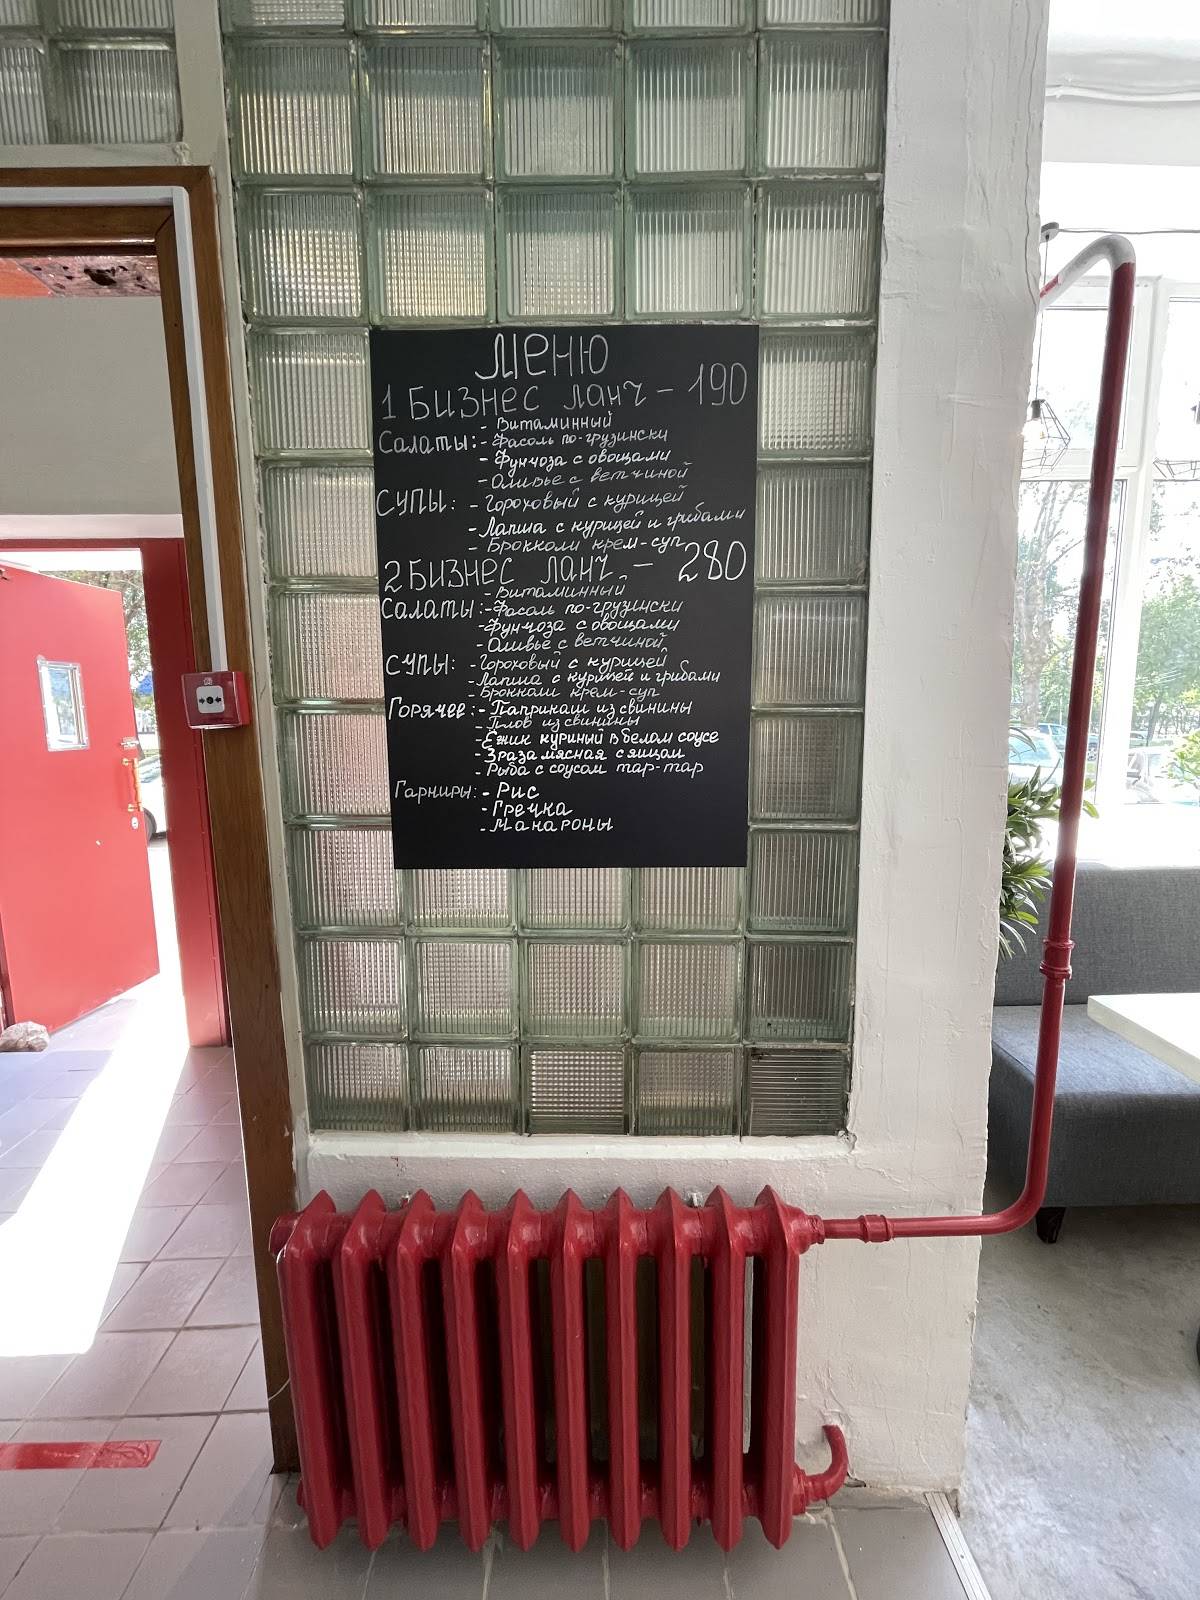 Меню
1 Бизнес ланч - 190
- Витаминный
Салаты: - Фасоль по-грузински
- Фунчоза с овощами
- Оливье с ветчиной
Супы: - Гороховый с курицей
- Лапша с курицей и грибами
- Брокколи крем-суп
2 Бизнес ланч - 280
- Витаминный
Салаты: - Фасоль по-грузински
- Фунчоза с овощами
- Оливье с ветчиной
Супы: - Гороховый с курицей
- Лапша с курицей и грибами
- Брокколи крем-суп
Горячее: - Паприкаш из свинины
- Плов из свинины
- Ёжик куриный в белом соусе
- Зраза мясная с яицом
- Рыба с соусом тар-тар
Гарниры: - Рис
- Гречка
- Макароны